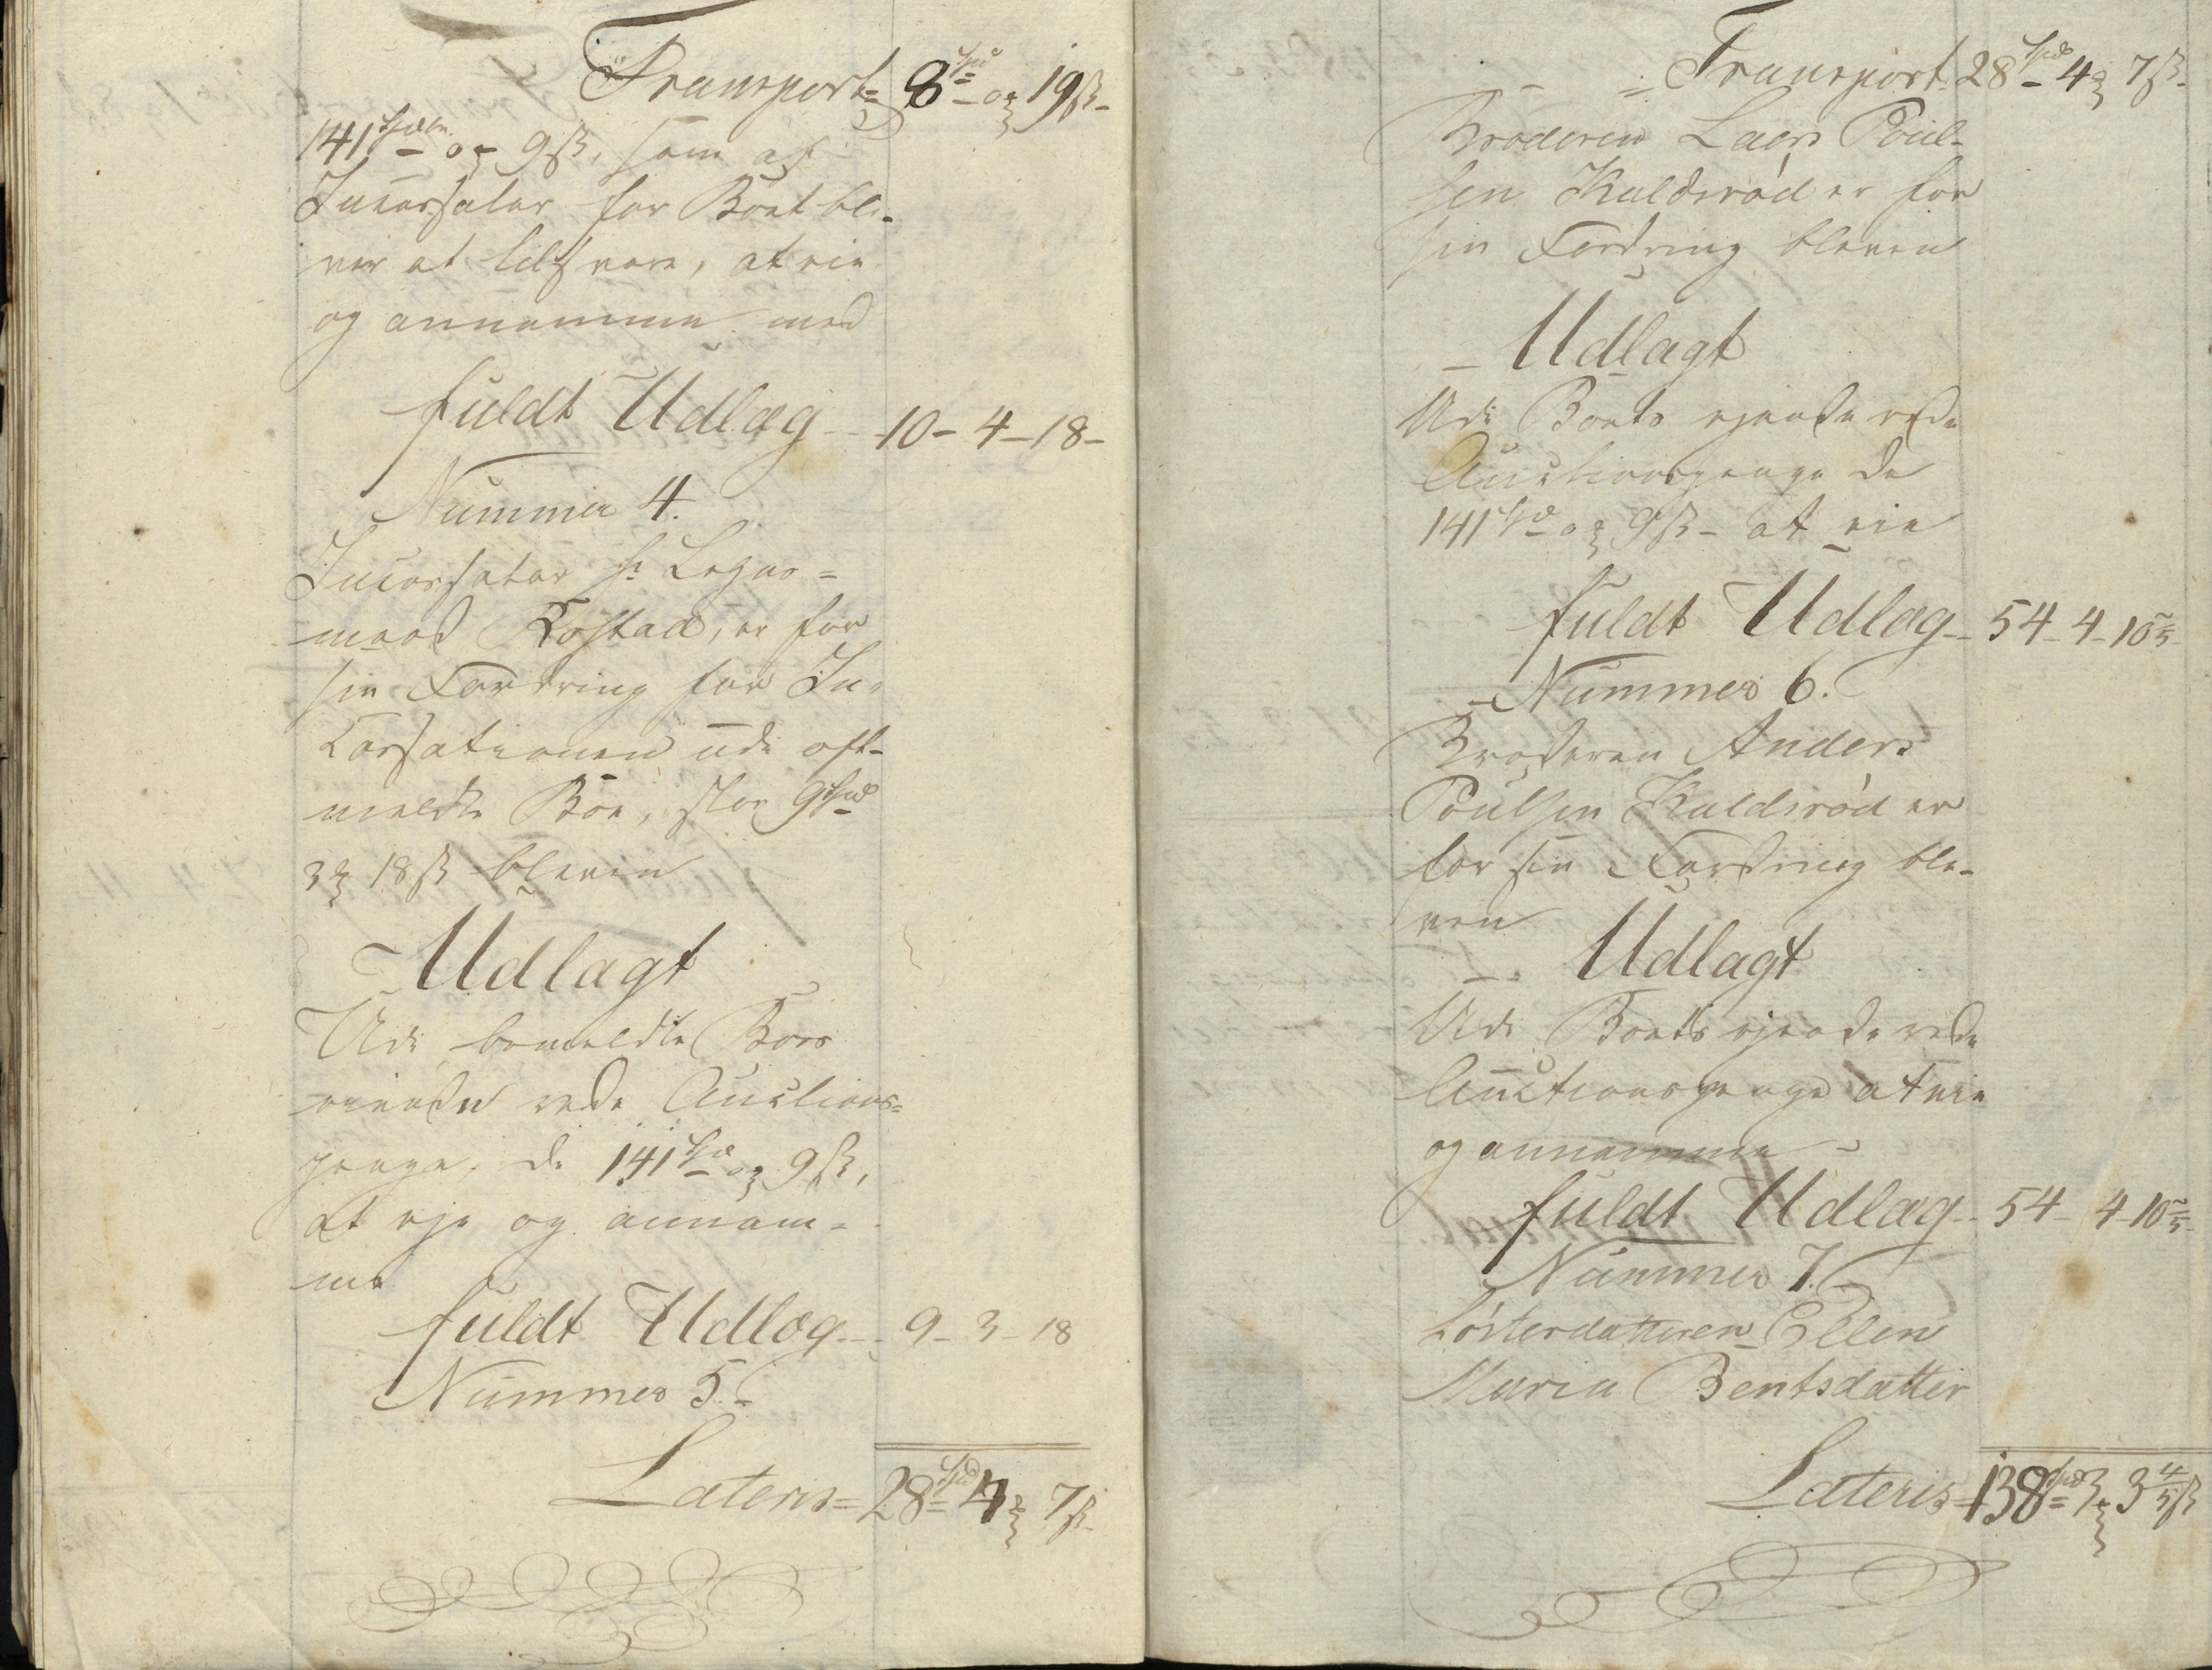 Transport = 8 Spd - o = 19 ß -
141 Spdlr - og 9 ß, som af
Incassator for Boet bli-
ver at tilsvare, at eie
og annamme med
fuldt Udlæg - 10 - 4 - 18 -
Nummer 4.
Incassator Hr Lehns =
mand Rostad, er for
sin Fordring for In-
cassationen udi oft-
meldte Boe, stor 9 Spd
3 ort 18 ß - bleven
Udlagt
Udi bemeldte Boes
eiende rede Auctions =
penge, de 141 Spd og 9 ß,
at eje og annam =
me
fuldt Udlæg - - 9 - 3 - 18
Nummer 5. -
Lateris = 28 Spd 4 ort 7 ß -
Transport 28 Spd - 4 ort 7 ß -
Broderen Laers Poul-
sen Kuldsrød er for
sin Fordring bleven
- Udlagt
Udi Boets ejende rede
Auctionspenge de
141 Spd og 9 ß - at eie
fuldt Udlæg - 54 - 4 - 10 2/5 -
- Nummer 6.
Broderen Anders
Poulsen Kuldsrød er
for sin Fordring ble-
ven
- Udlagt
Udi Boets ejende rede
Auctionspenge at eie
og annamme -
fuldt Udlæg - 54 - 4 - 10 2/5 -
Nummer 7.
Søsterdatteren Ellen
Maria Bentsdatter
Lateris = 138 Spd 3 ort 3 4/5 ß